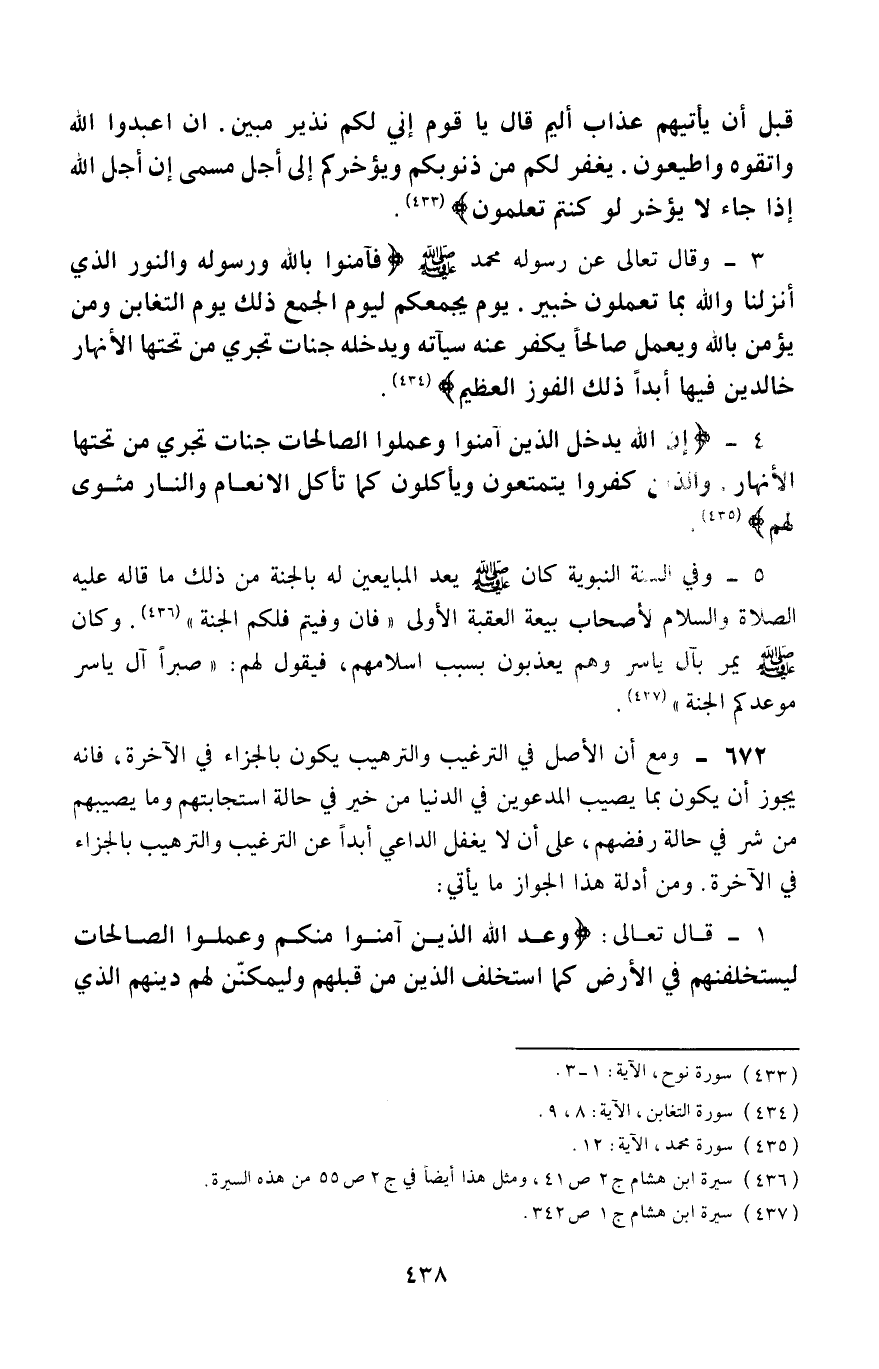 قبل أن يأتيهم عذاب أليم قال يا قوم إني لكم نذير مبين. ان اعبدوا الله
واتقوه واطيعون. يغفر لكم من ذنوبكم ويؤخركم إلى أجل مسمى إن أجل الله
إذا جاء لا يؤخر لو كنتم تعلمون﴾(٤٣٣).
٣ - وقال تعالى عن رسوله محمد ﷺ ﴿فآمنوا بالله ورسوله والنور الذي
أنزلنا والله بما تعملون خبير. يوم يجمعكم ليوم الجمع ذلك يوم التغابن ومن
يؤمن بالله ويعمل صالحاً يكفر عنه سيآته ويدخله جنات تجري من تحتها الأنهار
خالدين فيها أبداً ذلك الفوز العظيم﴾(٤٣٤).
٤ - ﴿إن الله يدخل الذين آمنوا وعملوا الصالحات جنات تجري من تحتها
الأنهار. والذين كفروا يتمتعون ويأكلون كما تأكل الانعـام والنـار مثـوى
لهم﴾(٤٣٥).
٥ - وفي السنة النبوية كان ﷺ يعد المبايعين له بالجنة من ذلك ما قاله عليه
الصلاة والسلام لأصحاب بيعة العقبة الأولى «فان وفيتم فلكم الجنة»(٤٣٦). وكان
ﷺ يمر بآل ياسر وهم يعذبون بسبب اسلامهم، فيقول لهم: «صبراً آل ياسر
موعدكم الجنة»(٤٣٧).
٦٧٢ - ومع أن الأصل في الترغيب والترهيب يكون بالجزاء في الآخرة، فانه
يجوز أن يكون بما يصيب المدعوين في الدنيا من خير في حالة استجابتهم وما يصيبهم
من شر في حالة رفضهم، على أن لا يغفل الداعي أبداً عن الترغيب والترهيب بالجزاء
في الآخرة. ومن أدلة هذا الجواز ما يأتي:
١ - قـال تعـالى: ﴿وعـد الله الذيـن آمنـوا منكـم وعملـوا الصـالحات
ليستخلفنهم في الأرض كما استخلف الذين من قبلهم وليمكنّن لهم دينهم الذي
(٤٣٣) سورة نوح، الآية: ١-٣.
(٤٣٤) سورة التغابن، الآية: ٨، ٩.
(٤٣٥) سورة محمد، الآية: ١٢.
(٤٣٦) سيرة ابن هشام ج٢ ص٤١، ومثل هذا أيضاً في ج٢ ص٥٥ من هذه السيرة.
(٤٣٧) سيرة ابن هشام ج١ ص٣٤٢.
٤٣٨